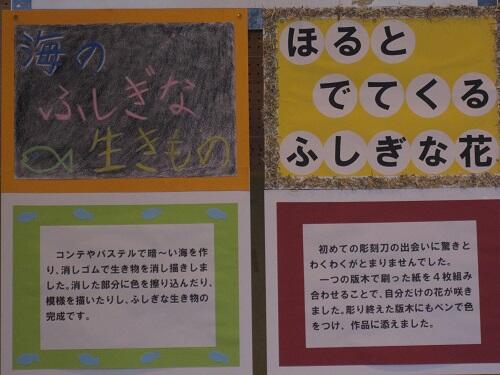 海の
ふしぎな
生きもの
コンテやパステルで暗～い海を作
り、消しゴムで生き物を消し描きしま
した。消した部分に色を擦り込んだり、
模様を描いたりし、ふしぎな生き物の
完成です。
ほると
でてくる
ふしぎな花
初めての彫刻刀の出会いに驚きと
わくわくがとまりませんでした。
一つの版木で刷った紙を４枚組み
合わせることで、自分だけの花が咲き
ました。彫り終えた版木にもペンで色
をつけ、作品に添えました。